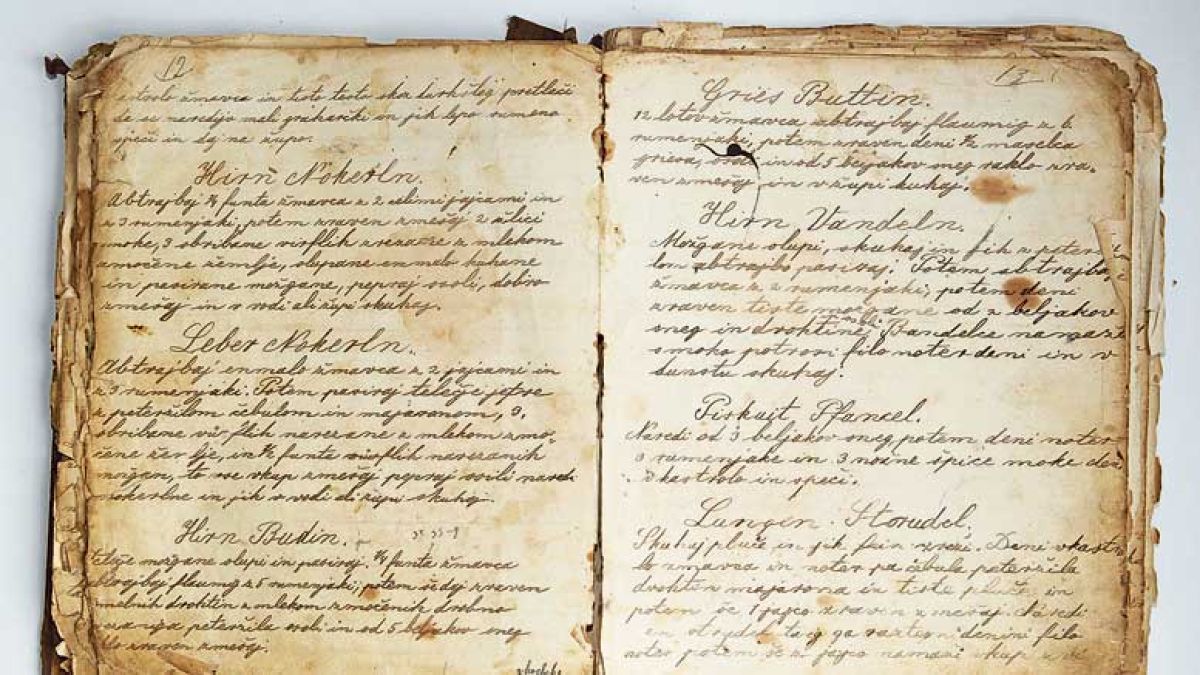 12
žmavca in tisto testo skoz durhšleg pretlači
de se naredijo mali grahariki in jih lepo rumeno
speči in dej na župo.
Hirn Nokerln.
Abtrajbaj ¼ funta žmavca z 2 celimi jajcami in
z 3 rumenjaki, potem zraven zmešaj 2 žlici
moke, 3 obribane virflih zrezane z mlekom
zmočene žemlje, olupane en malo kuhane
in pasirane možgane, pepraj soli, dobro
zmešaj in v vodi ali župi skuhaj.
Leber Nokerln.
Abtrajbaj en malo žmavca z 2 jajcami in
z 3 rumenjaki. Potem pasiraj telečje jetre
z peteržilom čebulom in majaronam, 3
obribane virflih narezane z mlekom zmo-
čene žemlje, in ¼ funta virflih narezanih
možgan, to vse vkup zmešaj pepraj soli naredi
nokerlne in jih v vodi ali župi skuhaj.
Hirn Budin.
telečje možgane olupi in pasiraj, ¼ funta žmavca
abtrajbaj flaumig z 5 rumenjaki, potem zdaj zraven
drobtin z mlekom zmočenih drobno
peteržila soli in od 5 beljakov sneg
zraven zmešaj.
13
Gries Buttin.
12 lotov žmavca abtrajbaj flaumig z 6.
rumenjaki, potem zraven deni ½ maselca
griesa, in od 5 beljakov sneg rahlo zra-
ven zmešaj in v župi kuhaj.
Hirn Vandeln.
Možgane olupi, skuhaj in jih z peterži-
lom abtrajbo pasiraj. Potem abtrajbaj
žmavca z 2 rumenjaki, potem deni
zraven tiste možgane od 2 beljakov
sneg in drobtine, Bandelce namaži
z moko potrosi filo noter deni in v
dunstu skuhaj.
Piskujt Pfancel.
Naredi od 3 beljakov sneg potem deni noter
3 rumenjake in 3 nožne špice moke deni
v kastrolo in speči.
Lungen Storudel.
Skuhaj pluče in jih fein zreži. Deni v kastro-
lo žmavca in noter pa čebula peteržila
drobtin majarona in tiste pluče, in
potem še 1 jajco zraven zmešaj. Naredi
en štrudel tag ga raztegni deni filo
noter potem še z jajco namaži vkup z